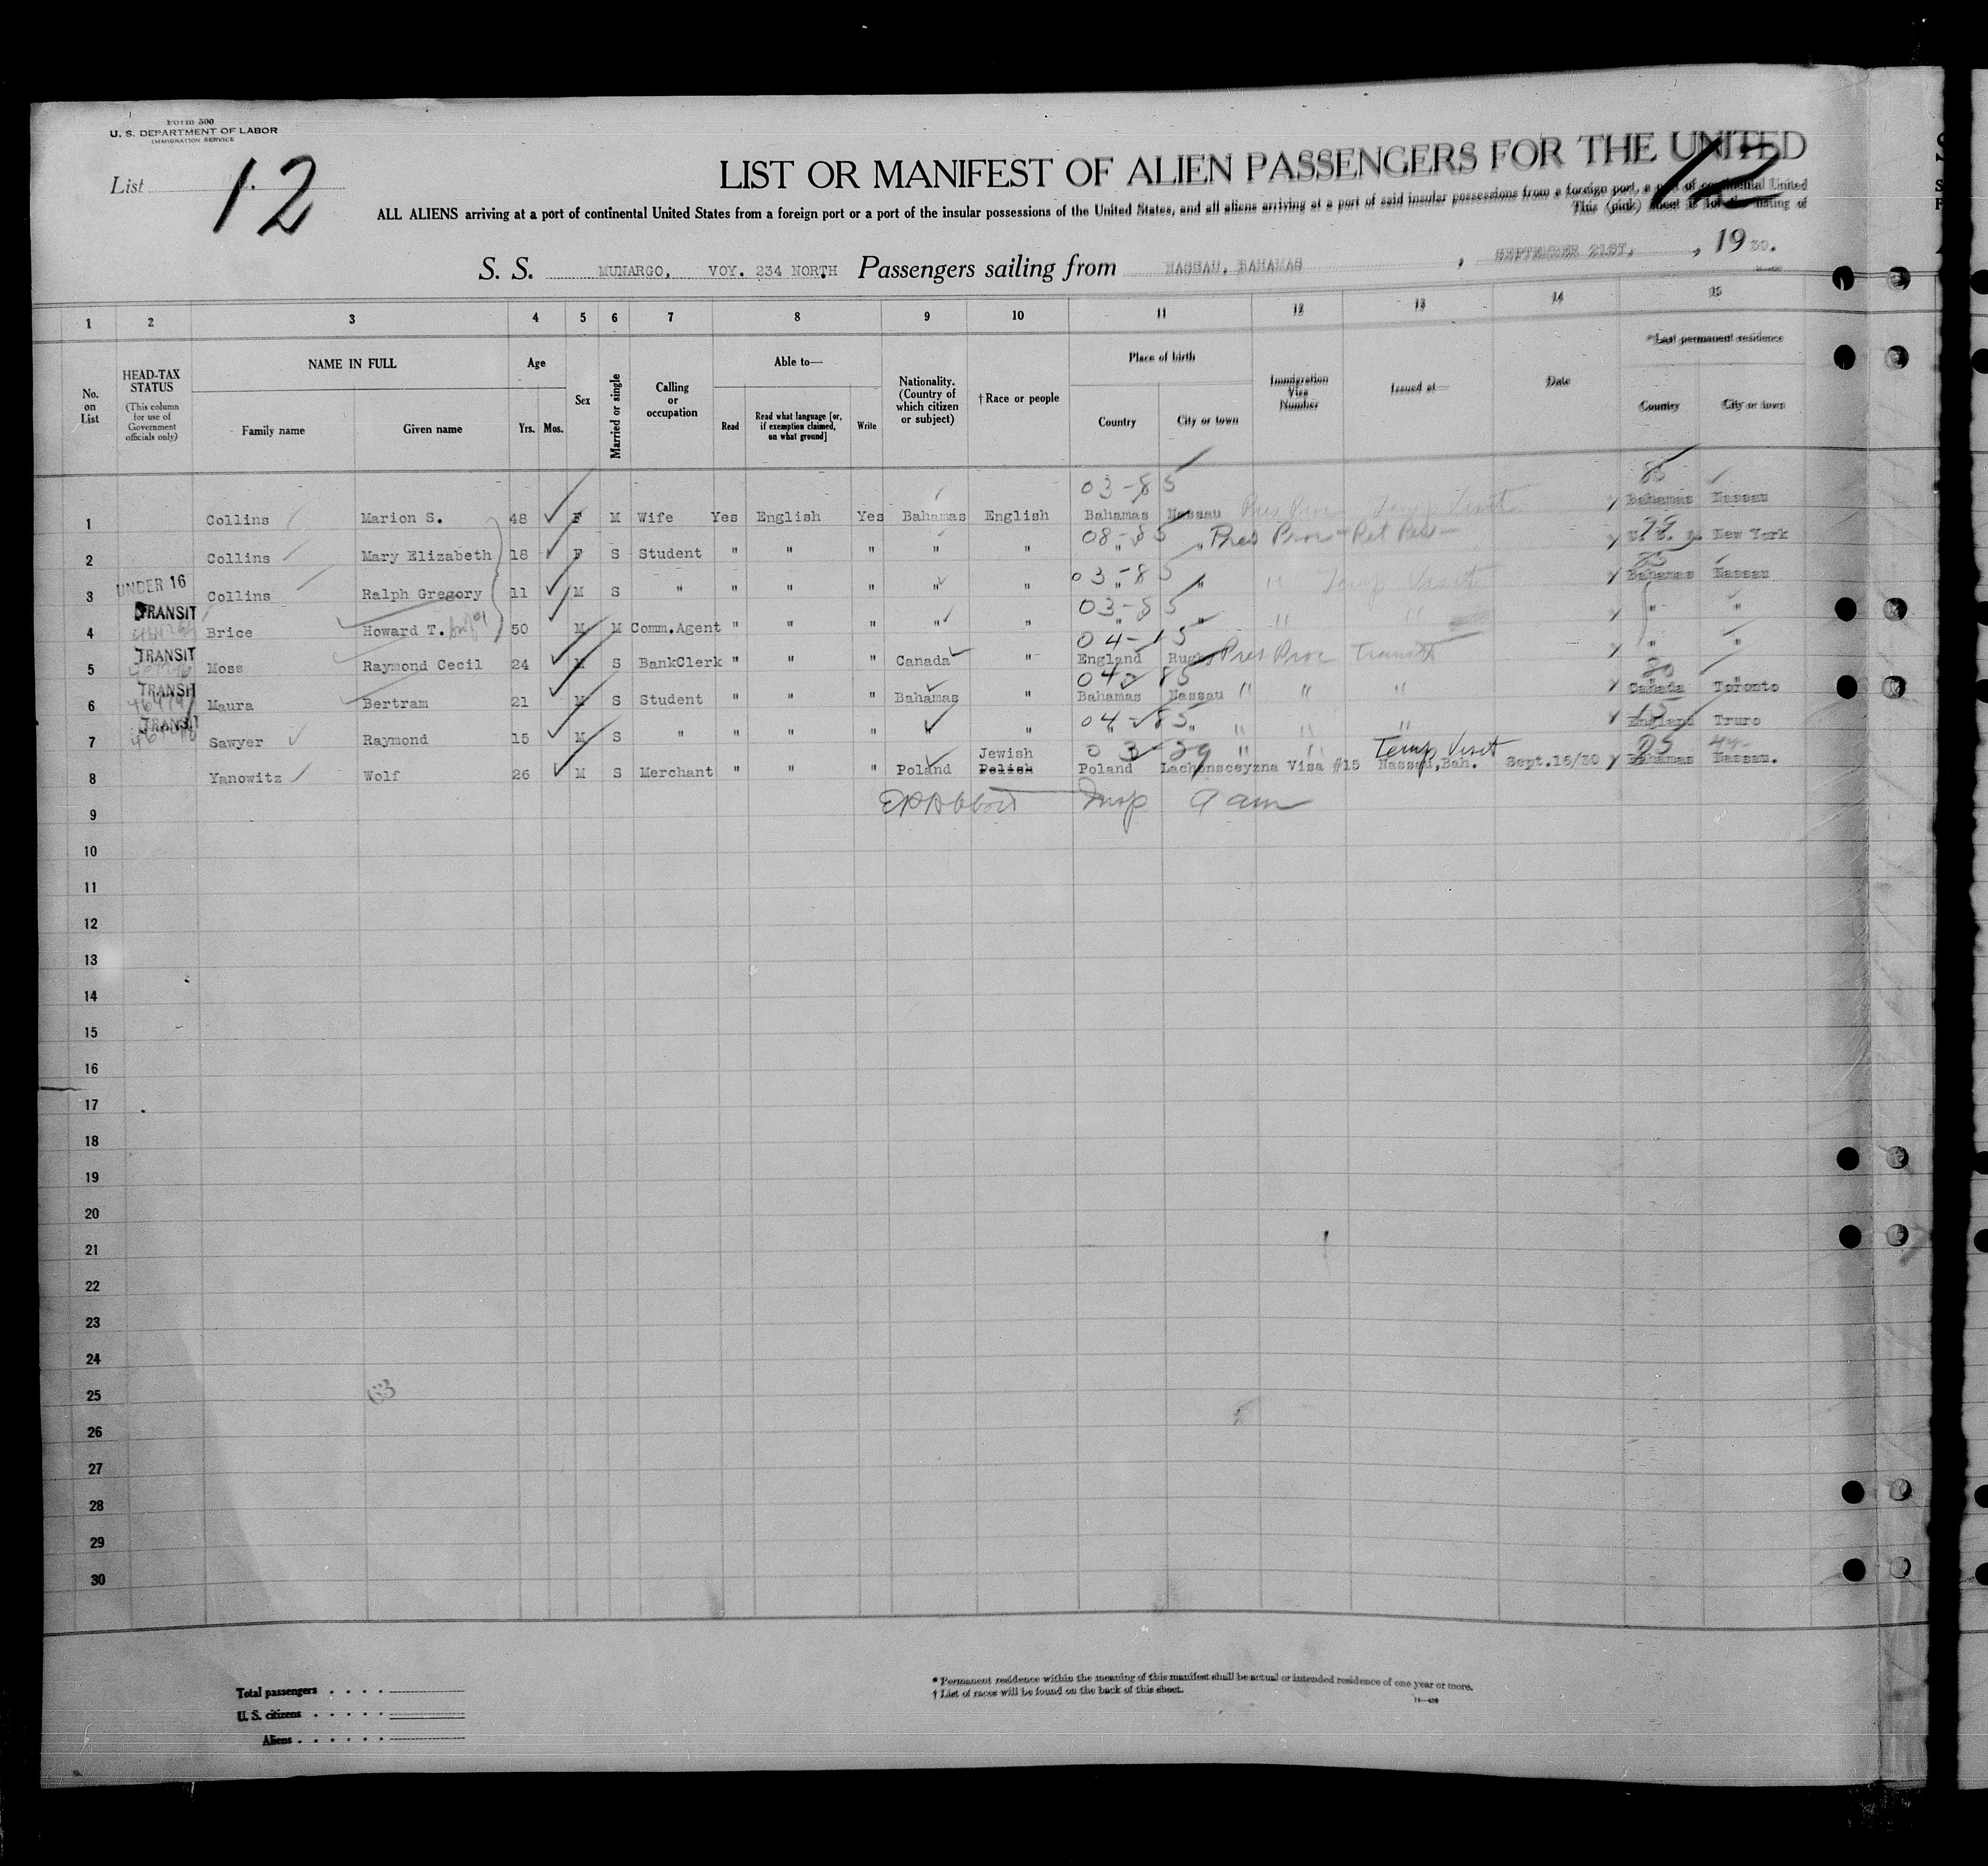 Form 500
U. S. DEPARTMENT OF LABOR
IMMIGRATION SERVICE
List 12
12
LIST OR MANIFEST OF ALIEN PASSENGERS FOR THE UNITED
ALL ALIENS arriving at a port of continental United States from a foreign port or a port of the insular possessions of the United States, and all aliens arriving at a port of said insular possessions from a foreign port, a port of continental United
This (pink) sheet is for the listing of
S. S. MUNARGO, VOY. 234 NORTH. Passengers sailing from NASSAU, BAHAMAS, SEPTEMBER 21ST, , 19 30.
1 2 3 4 5 6 7 8 9 10 11 12 13 14 15
No. on List
HEAD-TAX STATUS (This column for use of Government officials only)
NAME IN FULL
Family name
Given name
Age
Yrs. Mos.
Sex
Married or single
Calling or occupation
Able to—
Read
Read what language [or, if exemption claimed, on what ground]
Write
Nationality. (Country of which citizen or subject)
† Race or people
Place of birth
Country
City or town
Immigration Visa Number
Issued at—
Date
*Last permanent residence
Country
City or town
03-85 85
1 Collins Marion S. 48 F M Wife Yes English Yes Bahamas English Bahamas Nassau Pres Proc Temp Visit Bahamas Nassau
2 Collins Mary Elizabeth 18 F S Student " " " " " 08-85 " " Pres Proc - Ret Res - U. S. A. New York
3 UNDER 16 Collins Ralph Gregory 11 M S " " " " " " 03-85 " " " Temp Visit Bahamas Nassau
4 TRANSIT Brice Howard T. 50 M M Comm.Agent " " " " " 03-85 " " " " " "
5 TRANSIT Moss Raymond Cecil 24 M S BankClerk " " " Canada " 04-15 England Rugby Pres Proc Transit " "
6 TRANSIT Maura Bertram 21 M S Student " " " Bahamas " 04-85 Bahamas Nassau " " " 80 Canada Toronto
7 TRANSIT Sawyer Raymond 15 M S " " " " " " 04-85 " " " " " 15 England Truro
8 Yanowitz Wolf 26 M S Merchant " " " Poland Jewish Polish 03-29 Poland Lachonsceyzna Visa #15 Temp Visit Nassau, Bah. Sept.16/30 85 Bahamas Nassau.
9 Insp 9 am
10
11
12
13
14
15
16
17
18
19
20
21
22
23
24
25 63
26
27
28
29
30
Total passengers . . . .
U. S. citizens . . . . .
Aliens . . . . . .
* Permanent residence within the meaning of this manifest shall be actual or intended residence of one year or more.
† List of races will be found on the back of this sheet.